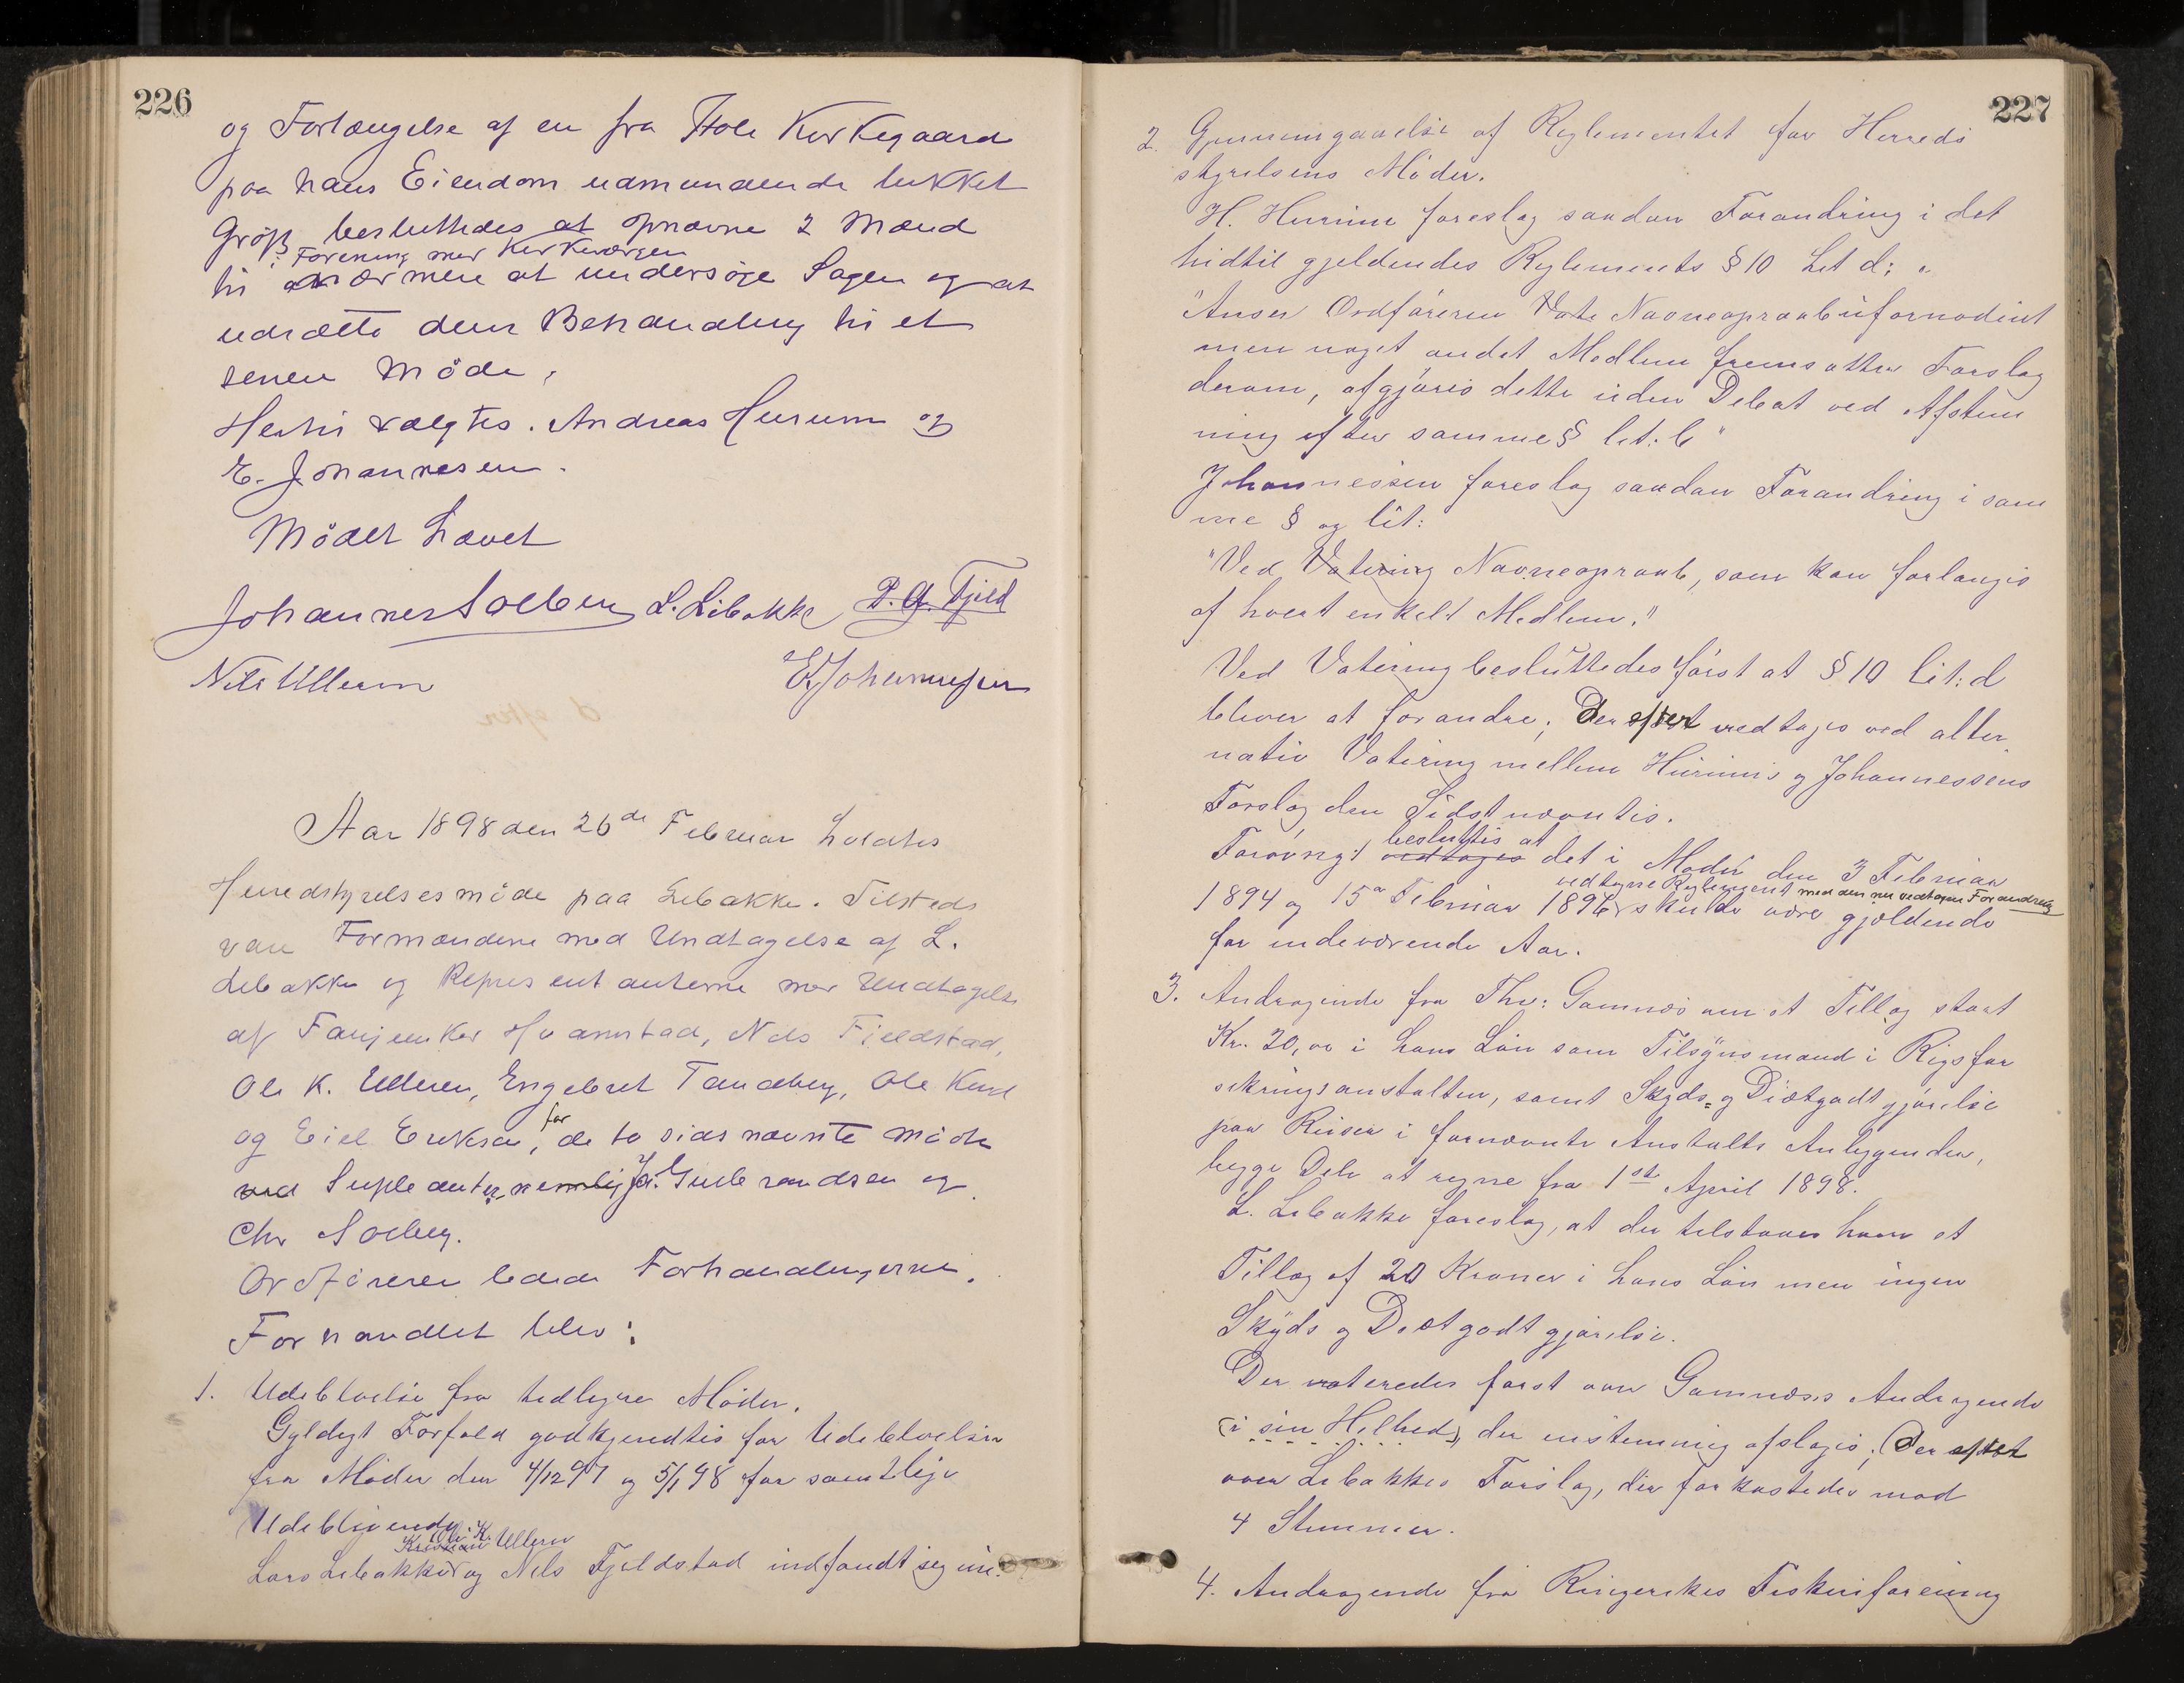 226
og Forlængelse af en fra Hole Kirkegaard
paa hans Eiendom udmundende lukket
Grøft besluttedes at opnævne 2 Mænd
i Forening med Kirkeværgen
til nærmere at undersøge Sagen og at
udsætte dens Behandling til et
senere Møde.
Hertil valgtes. Andreas Hurum og
E. Johannesen.
Mødet hævet
Johannes Solberg L. Libakke P. G. Fjeld
Nils Ullern E. Johannesen
Aar 1898 den 26de Februar holdtes
Herredstyrelsesmøde paa Libakke. Tilstede
vare Formændene med Undtagelse af L.
Libakke og Repræsentanterne med Undtagelse
af Fanejunker Hvamstad, Nils Fjeldstad,
Ole K. Ullern, Engebret Tandberg, Ole
og Eiel Eriksen, for de to sidsnævnte mødte
ved Supleanter nemlig Gulbrandsen og
Chr Solberg.
Ordføreren ledede Forhandlingerne.
Forhandlet blev:
1. Udeblivelse fra tidligere Møder.
Gyldigt Forfald godkjendtes for Udeblivelsen
fra Møder den 4/12 97 og 5/1 98 for samtlige
Udeblivende
Ole K. Ullern
Lars Libakke og Nils Fjeldstad indfandt sig nu.
227
2. Gjennemgaaelse af Reglementet for Herreds
styrelsens Møder.
H. Hurum foreslog saadan Forandring i det
hidtil gjeldendes Reglements § 10 Lit d:
"Anser Ordføreren Vote Navneopraab ufornødent
men noget andet Medlem fremsætter Forslag
derom, afgjøres dette uden Debat ved Afstem
ning efter samme § lit: b"
Johannessen foreslog saadan Forandring i sam
me § og lit:
"Ved Votering Navneopraab, som kan forlanges
af hvert enkelt Medlem."
Ved Votering besluttedes først at § 10 lit: d
bliver at forandre; Derefter vedtoges ved alter
nativ Votering mellem Hurums og Johannessens
Forslag den Sidstnævntes.
besluttes at
Forøvrigt vedtoges det i Møder den 3 Februar
vedtagne Reglement med den nu vedtagne Forandring
1894 og 15de Februar 1896 skulde være gjældende
for indeværende Aar.
3. Andragende fra Thv: Gomnæs om et Tillæg stort
Kr. 20,00 i hans Løn som Tilsynsmand i Rigsfor
sikringsanstalten, samt Skyds- og Diætgodtgjørelse
paa Reiser i fornævnte Anstalts Anliggender,
begge Dele at regne fra 1ste April 1898.
L. Libakke foreslog, at der tilstaaes ham et
Tillæg af 20 Kroner i hans Løn men ingen
Skyds og Diætgodtgjørelse.
Der voteredes først over Gomnæs's Andragende
(i sin Helhed), der enstemmig afsloges; Derefter
over Libakkes Forslag, der forkastedes mod
4 Stemmer.
4. Andragende fra Ringerikes Fiskeriforening